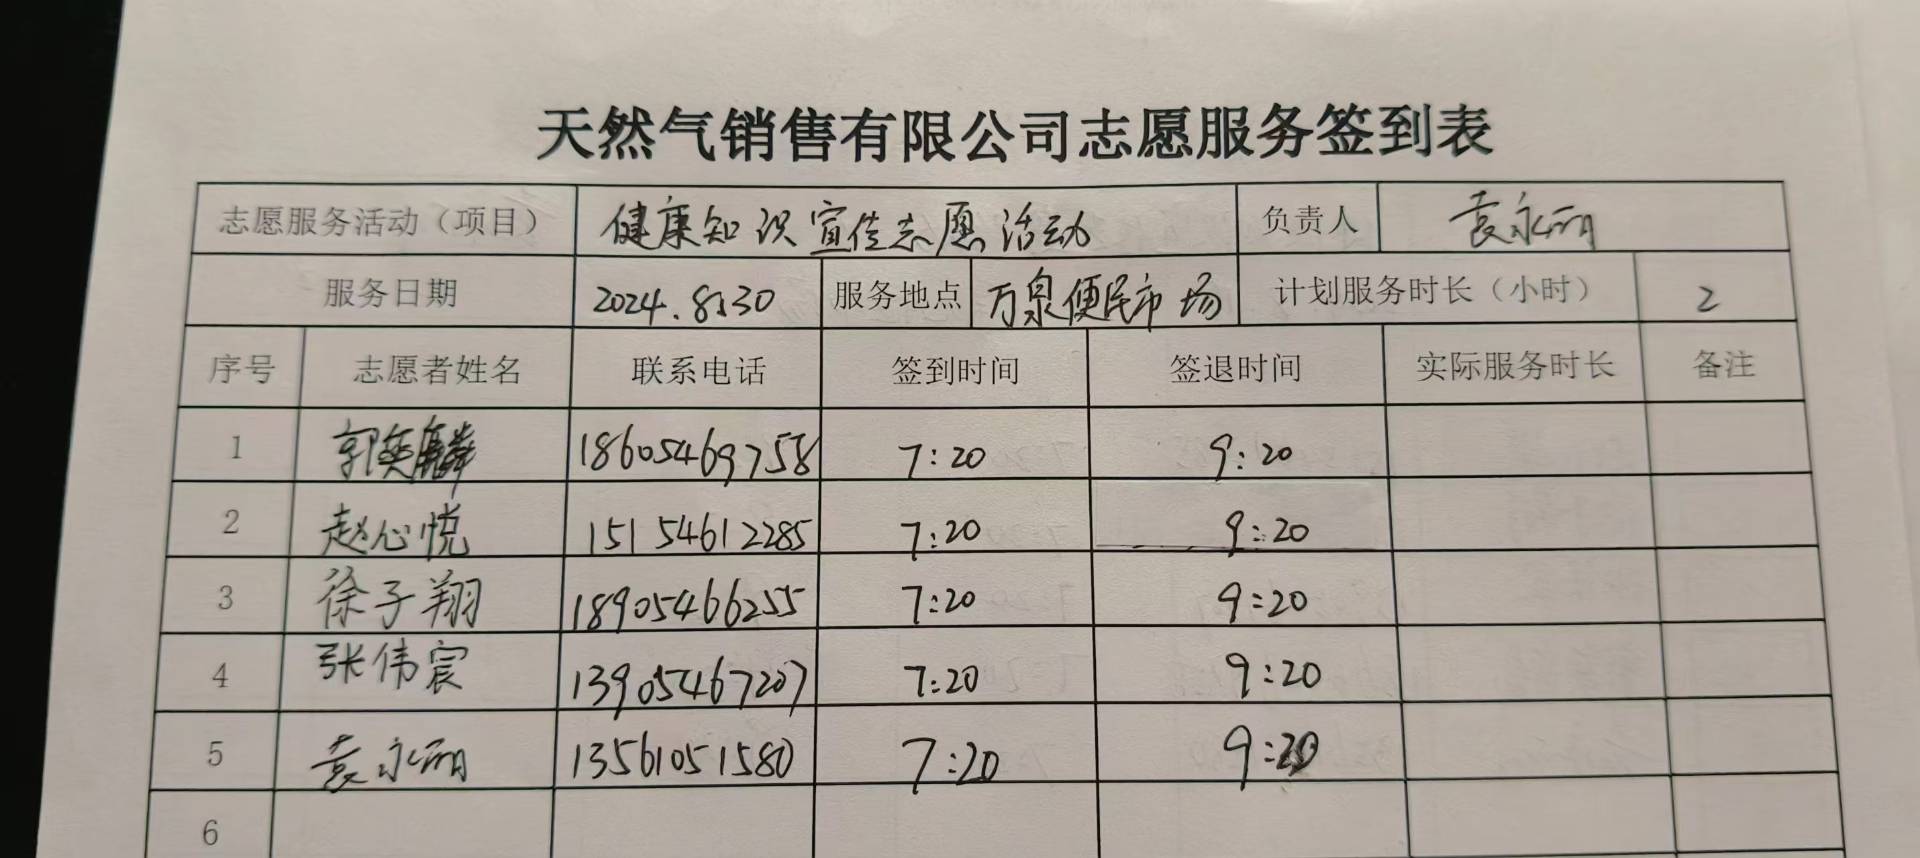 天然气销售有限公司志愿服务签到表
志愿服务活动（项目） 健康知识宣传志愿活动 负责人 袁永丽
服务日期 2024.8.30 服务地点 万泉便民市场 计划服务时长（小时） 2
序号 志愿者姓名 联系电话 签到时间 签退时间 实际服务时长 备注
1 郭奕麟 18605469758 7:20 9:20
2 赵心悦 15154612285 7:20 9:20
3 徐子翔 18905466255 7:20 9:20
4 张伟宸 13905467207 7:20 9:20
5 袁永丽 13561051580 7:20 9:20
6